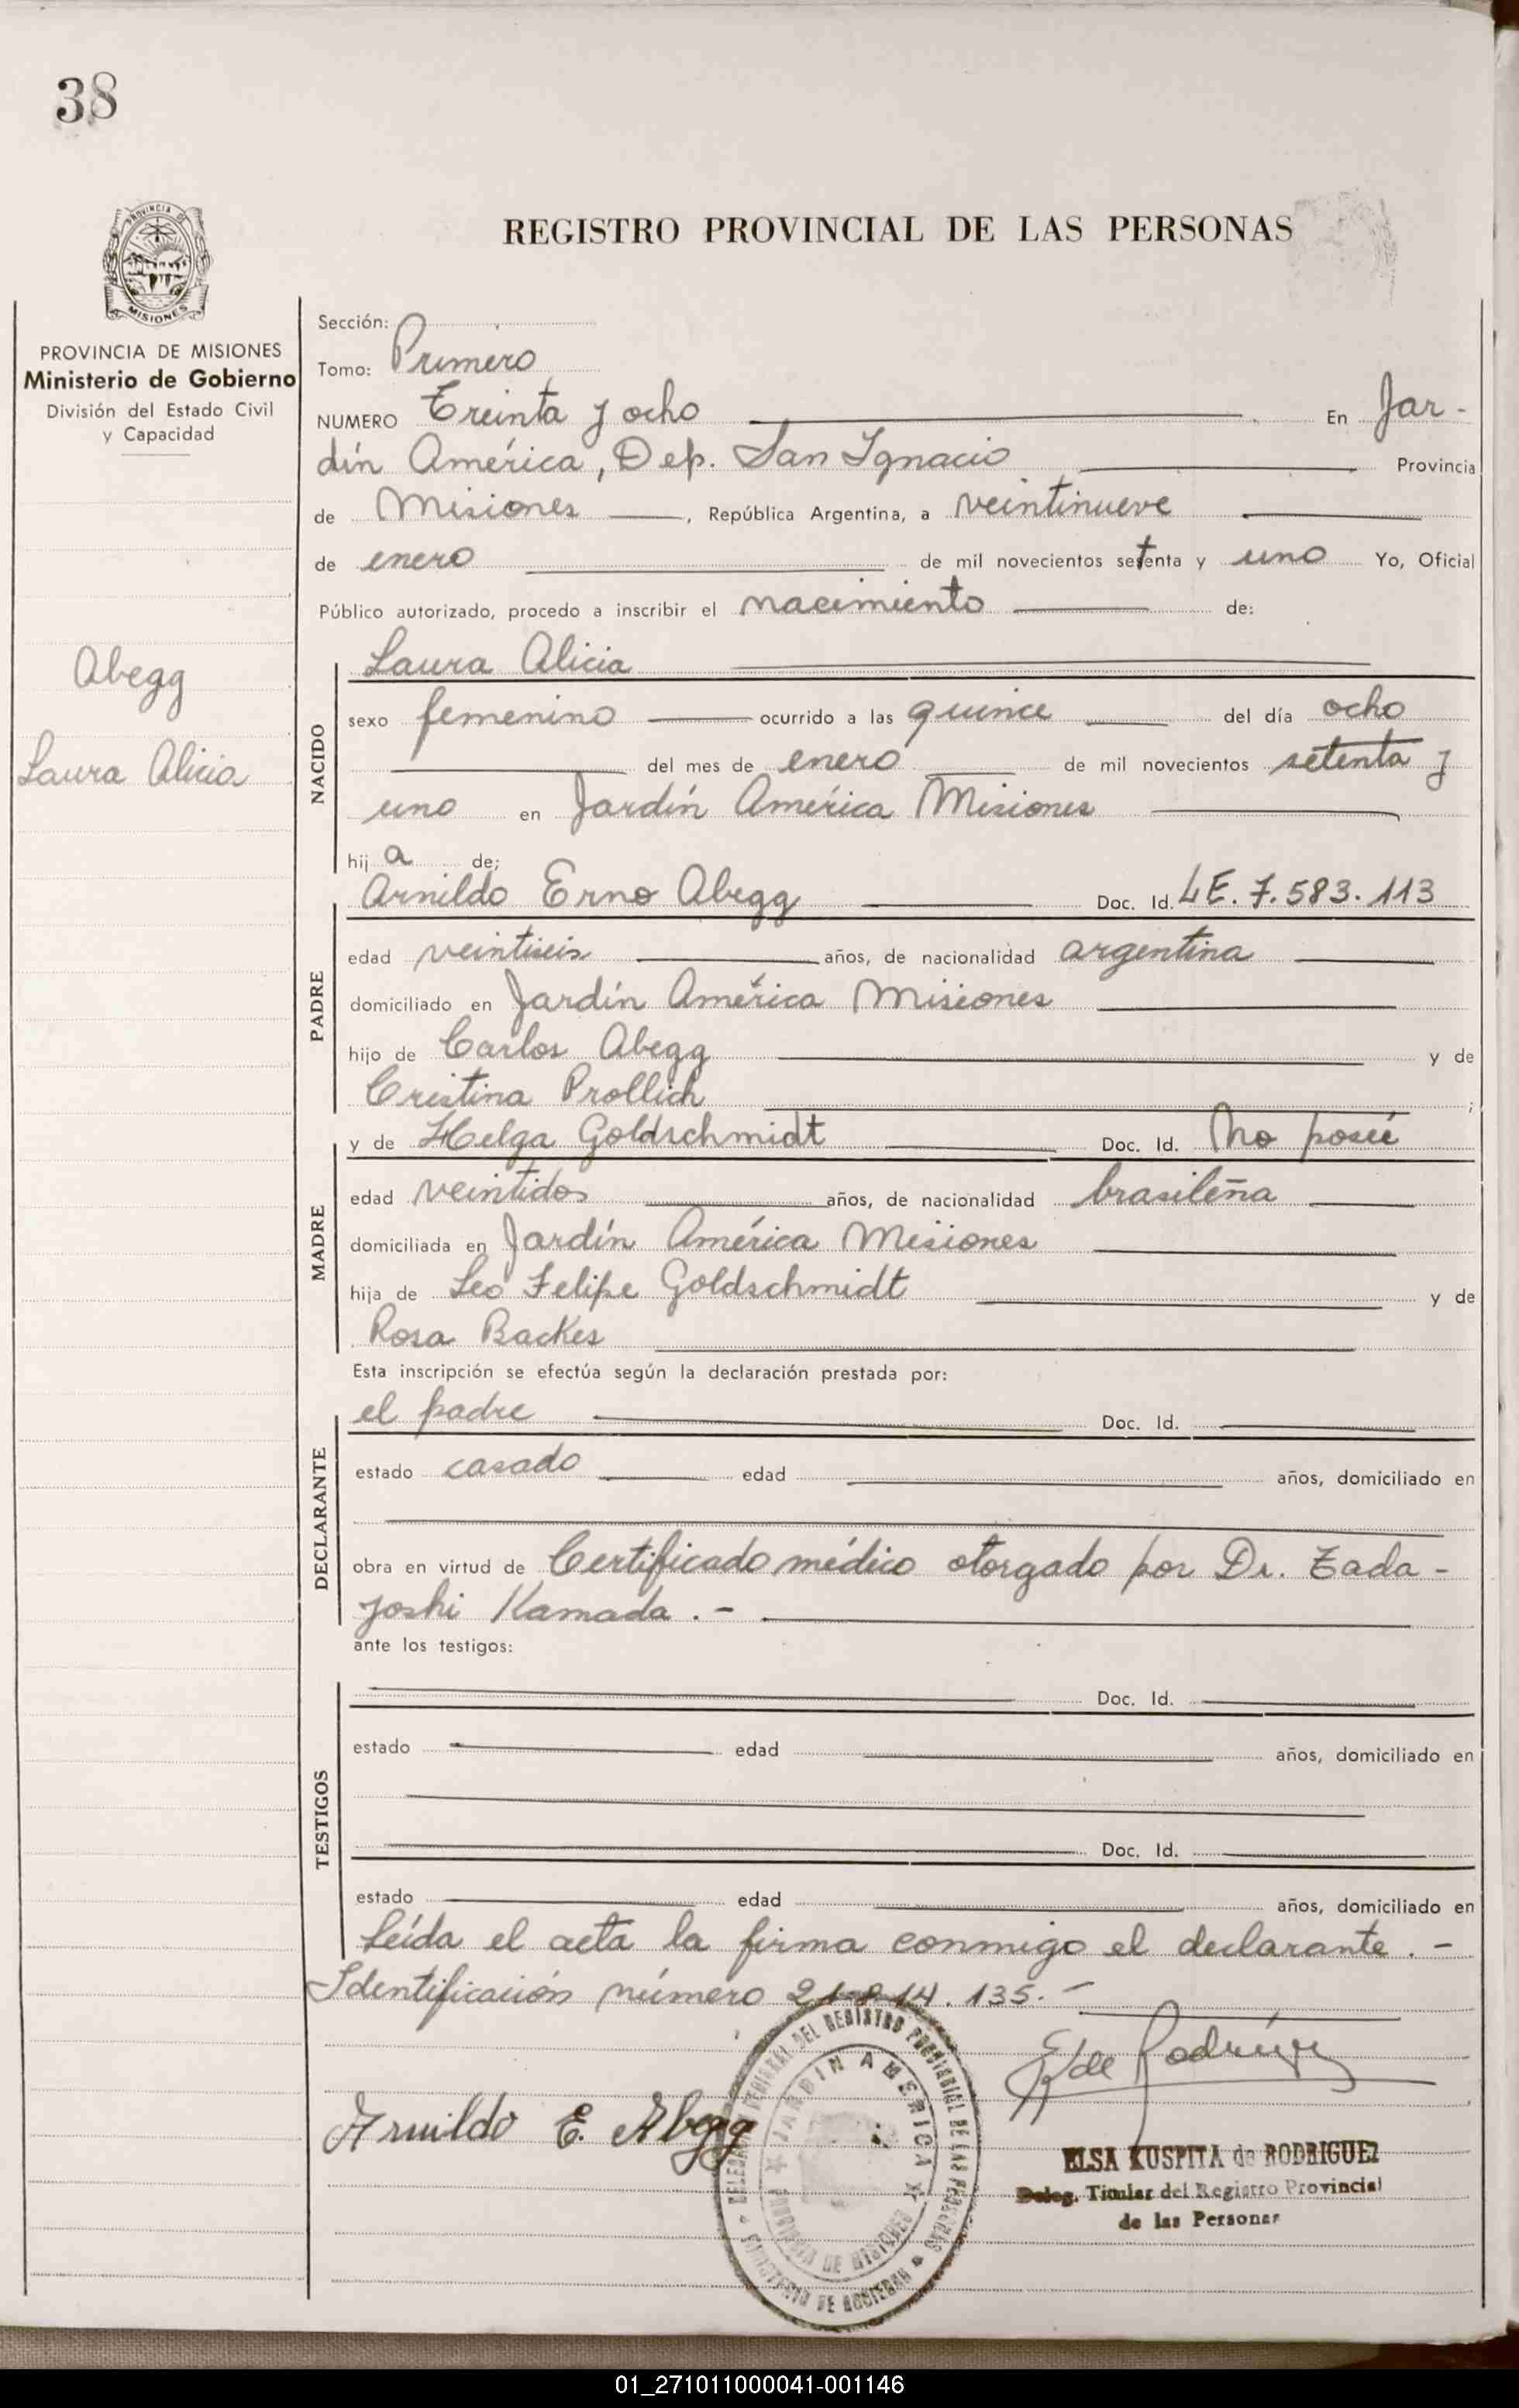 38
PROVINCIA DE
MISIONES
PROVINCIA DE MISIONES
Ministerio de Gobierno
División del Estado Civil
y Capacidad
Abegg
Laura Alicia
REGISTRO PROVINCIAL DE LAS PERSONAS
Sección:
Tomo: Primero
NUMERO Treinta y ocho En Jar-
dín América, Dep. San Ignacio Provincia
de Misiones, República Argentina, a veintinueve
de enero de mil novecientos setenta y uno Yo, Oficial
Público autorizado, procedo a inscribir el nacimiento de:
NACIDO
Laura Alicia
sexo femenino ocurrido a las quince del día ocho
del mes de enero de mil novecientos setenta y
uno en Jardín América Misiones
hija de;
PADRE
Arnildo Erno Abegg Doc. Id. LE. 7.583.113
edad veintiseis años, de nacionalidad argentina
domiciliado en Jardín América Misiones
hijo de Carlos Abegg y de
Cristina Prollich ;
MADRE
y de Helga Goldschmidt Doc. Id. No poseé
edad veintidos años, de nacionalidad brasileña
domiciliada en Jardín América Misiones
hija de Leo Felipe Goldschmidt y de
Rosa Backes
Esta inscripción se efectúa según la declaración prestada por:
DECLARANTE
el padre Doc. Id.
estado casado edad años, domiciliado en
obra en virtud de Certificado médico otorgado por Dr. Tada-
yoshi Kamada.-
ante los testigos:
TESTIGOS
Doc. Id.
estado edad años, domiciliado en
Doc. Id.
estado edad años, domiciliado en
Leída el acta la firma conmigo el declarante.-
Identificación número 21.814.135.-
E K de Rodríguez
Arnildo E. Abegg
DELEGACION DEL REGISTRO PROVINCIAL DE LAS PERSONAS
JARDIN AMERICA
PROVINCIA DE MISIONES
MINISTERIO DE GOBIERNO
ELSA KUSPITA de RODRIGUEZ
Deleg. Titular del Registro Provincial
de las Personas
01_271011000041-001146